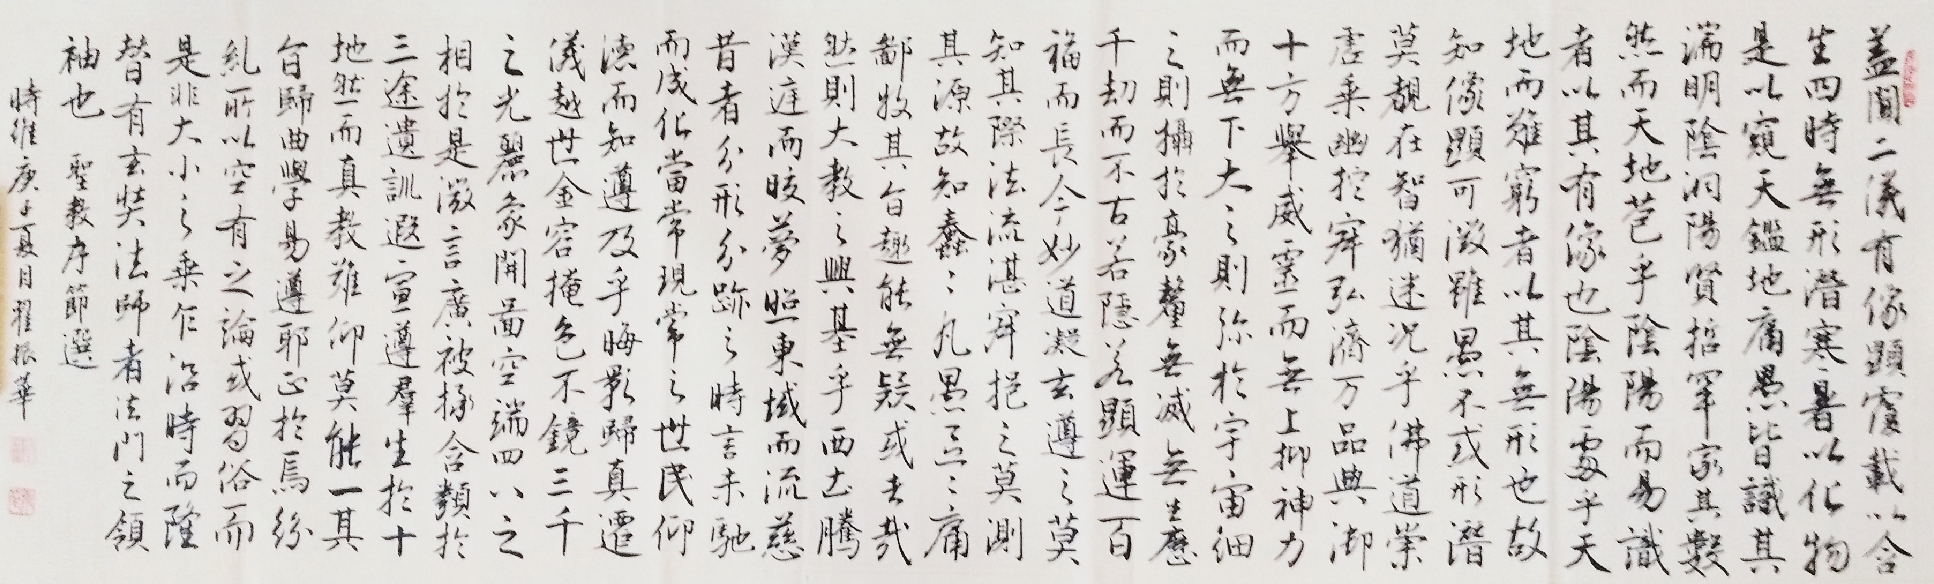 蓋聞二儀有像顯覆載以含
生四時無形潛寒暑以化物
是以窺天鑑地庸愚皆識其
端明陰洞陽賢哲罕窮其數
然而天地苞乎陰陽而易識
者以其有像也陰陽處乎天
地而難窮者以其無形也故
知像顯可徵雖愚不惑形潛
莫覩在智猶迷況乎佛道崇
虛乘幽控寂弘濟万品典御
十方舉威靈而無上抑神力
而無下大之則弥於宇宙細
之則攝於豪釐無滅無生歷
千劫而不古若隱若顯運百
福而長今妙道凝玄遵之莫
知其際法流湛寂挹之莫測
其源故知蠢〻凡愚區〻庸
鄙投其旨趣能無疑或者哉
然則大教之興基乎西土騰
漢庭而皎夢照東域而流慈
昔者分形分跡之時言未馳
而成化當常現常之世民仰
德而知遵及乎晦影歸真遷
儀越世金容掩色不鏡三千
之光麗象開圖空端四八之
相於是微言廣被拯含類於
三途遺訓遐宣遵羣生於十
地然而真教難仰莫能一其
旨歸曲學易遵耶正於焉紛
糺所以空有之論或習俗而
是非大小之乘乍沿時而隆
替有玄奘法師者法門之領
袖也 聖教序節選
時維庚子夏月翟振華